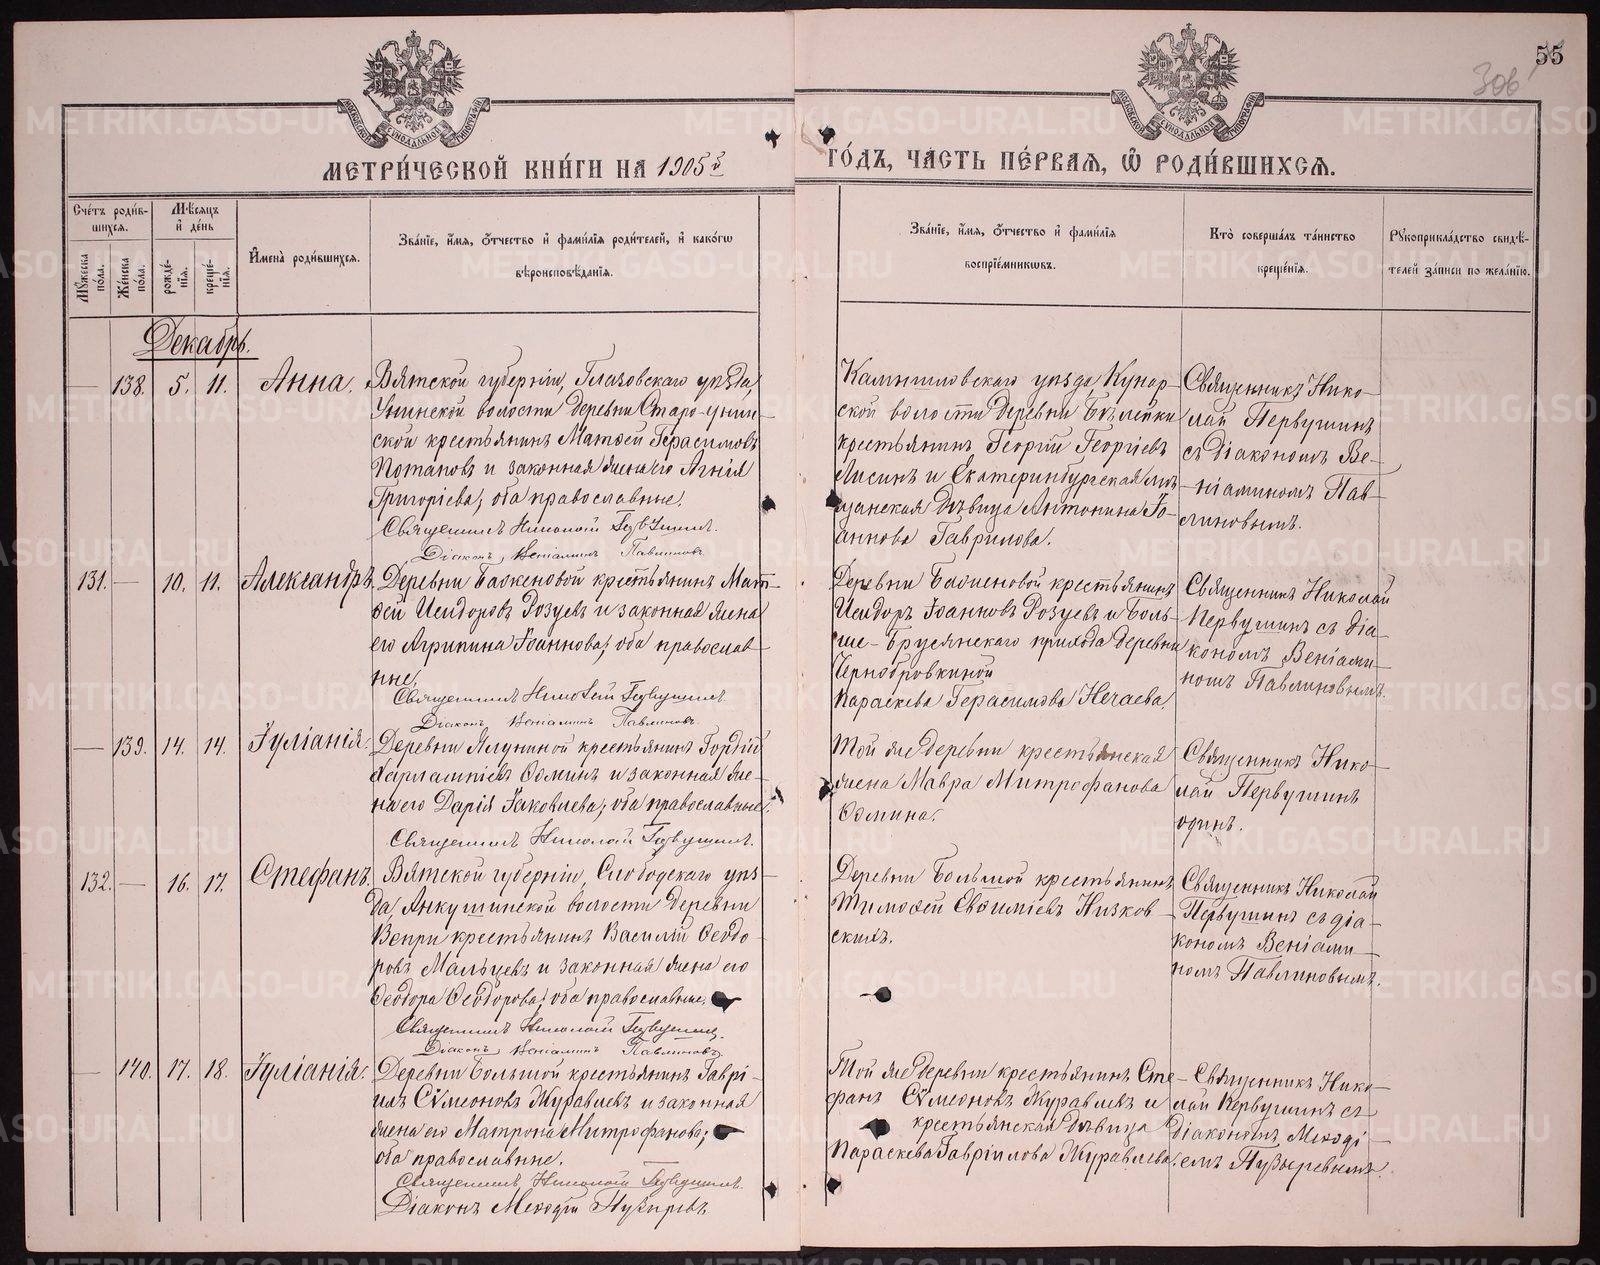 55
306
МОСКОВСКОЙ СУНОДАЛЬНОЙ ТИПОГРАФІИ
МОСКОВСКОЙ СУНОДАЛЬНОЙ ТИПОГРАФІИ
МЕТРИ́ЧЕСКОЙ КНИ́ГИ НА 1905й
ГО́ДЪ, ЧА́СТЬ ПЕ́РВАЯ, Ѡ РОДИ́ВШИХСЯ.
Сче́тъ роди́в-
шихся.
Мѣ́сяцъ
и҆ де́нь
Му́жеска по́ла.
Же́нска по́ла.
рожде́-
нїя.
креще́-
нїя.
И҆мена̀ роди́вшихся.
Зва́нїе, и҆́мя, ѻ҆́тчество и҆ фами́лїя роди́телей, и҆ како́гѡ
вѣроисповѣ́данїя.
Зва́нїе, и҆́мя, ѻ҆́тчество и҆ фами́лїя
воспрїе́мниковъ.
Кто̀ соверша́лъ та́инство
креще́нїя.
Рукоприкла́дство свидѣ́-
телей за́писи по жела́нїю.
Декабрь.
— 138. 5. 11. Анна.
Вятской губерніи, Глазовскаго уѣзда,
Унинской волости деревни Старо-Унин-
ской крестьянинъ Матѳей Герасимовъ
Потаповъ и законная жена его Агнія
Григоріева, оба православные.
Священникъ Николай Первушинъ.
Діаконъ Веніаминъ Павлиновъ
Камышловскаго уѣзда, Кунар-
ской волости деревни Бѣлейки
крестьянинъ Георгій Георгіевъ
Лисинъ и Екатеринбургская мѣ-
щанская дѣвица Антонина Іо-
аннова Гаврилова.
Священникъ Нико-
лай Первушинъ
съ діакономъ Ве-
ніаминомъ Пав-
линовымъ.
131. — 10. 11. Александръ.
Деревни Баженовой крестьянинъ Мат-
ѳей Исидоровъ Розуевъ и законная жена
его Агрипина Іоаннова, оба православ-
ные.
Священникъ Николай Первушинъ
Діаконъ Веніаминъ Павлиновъ
Деревни Баженовой крестьянинъ
Исидоръ Іоанновъ Розуевъ и Боль-
ше-Брусянскаго прихода деревни
Чернобровкиной
Параскева Герасимова Нечаева.
Священникъ Николай
Первушинъ съ діа-
кономъ Веніами-
номъ Павлиновымъ.
— 139. 14. 14. Іуліанія.
Деревни Ялуниной крестьянинъ Гордій
Харлампіевъ Ѳоминъ и законная же-
на его Дарія Іаковлева, оба православные.
Священникъ Николай Первушинъ.
Той же деревни крестьянская
жена Мавра Митрофанова
Ѳомина.
Священникъ Нико-
лай Первушинъ
одинъ.
132. — 16. 17. Стефанъ.
Вятской губерніи, Слободскаго уѣз-
да Анкушинской волости деревни
Вепри крестьянинъ Василій Ѳеодо-
ровъ Мальцевъ и законная жена его
Ѳеодора Ѳеодорова, оба православные.
Священникъ Николай Первушинъ.
Діаконъ Веніаминъ Павлиновъ
Деревни Большой крестьянинъ
Тимоѳей Евѳиміевъ Низков-
скихъ.
Священникъ Николай
Первушинъ съ діа-
кономъ Веніами-
номъ Павлиновымъ.
— 140. 17. 18. Іуліанія.
Деревни Большой крестьянинъ Гаврі-
илъ Сѵмеоновъ Журавлевъ и законная
жена его Матрона Митрофанова,
оба православные.
Священникъ Николай Первушинъ.
Діаконъ Меѳодій Пузыревъ
Той же деревни крестьянинъ Сте-
фанъ Сѵмеоновъ Журавлевъ и
крестьянская дѣвица
Параскева Гавріилова Журавлева.
Священникъ Нико-
лай Первушинъ съ
діакономъ Меѳоді-
емъ Пузыревымъ.
METRIKI.GASO-URAL.RU